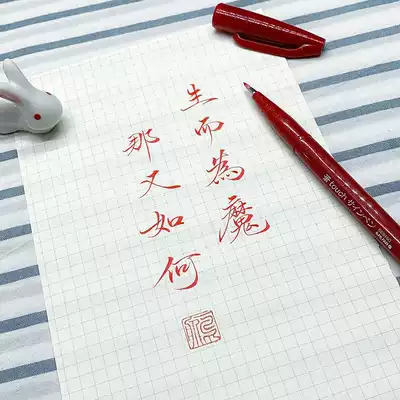 生而為魔
那又如何
筆touchサインペン